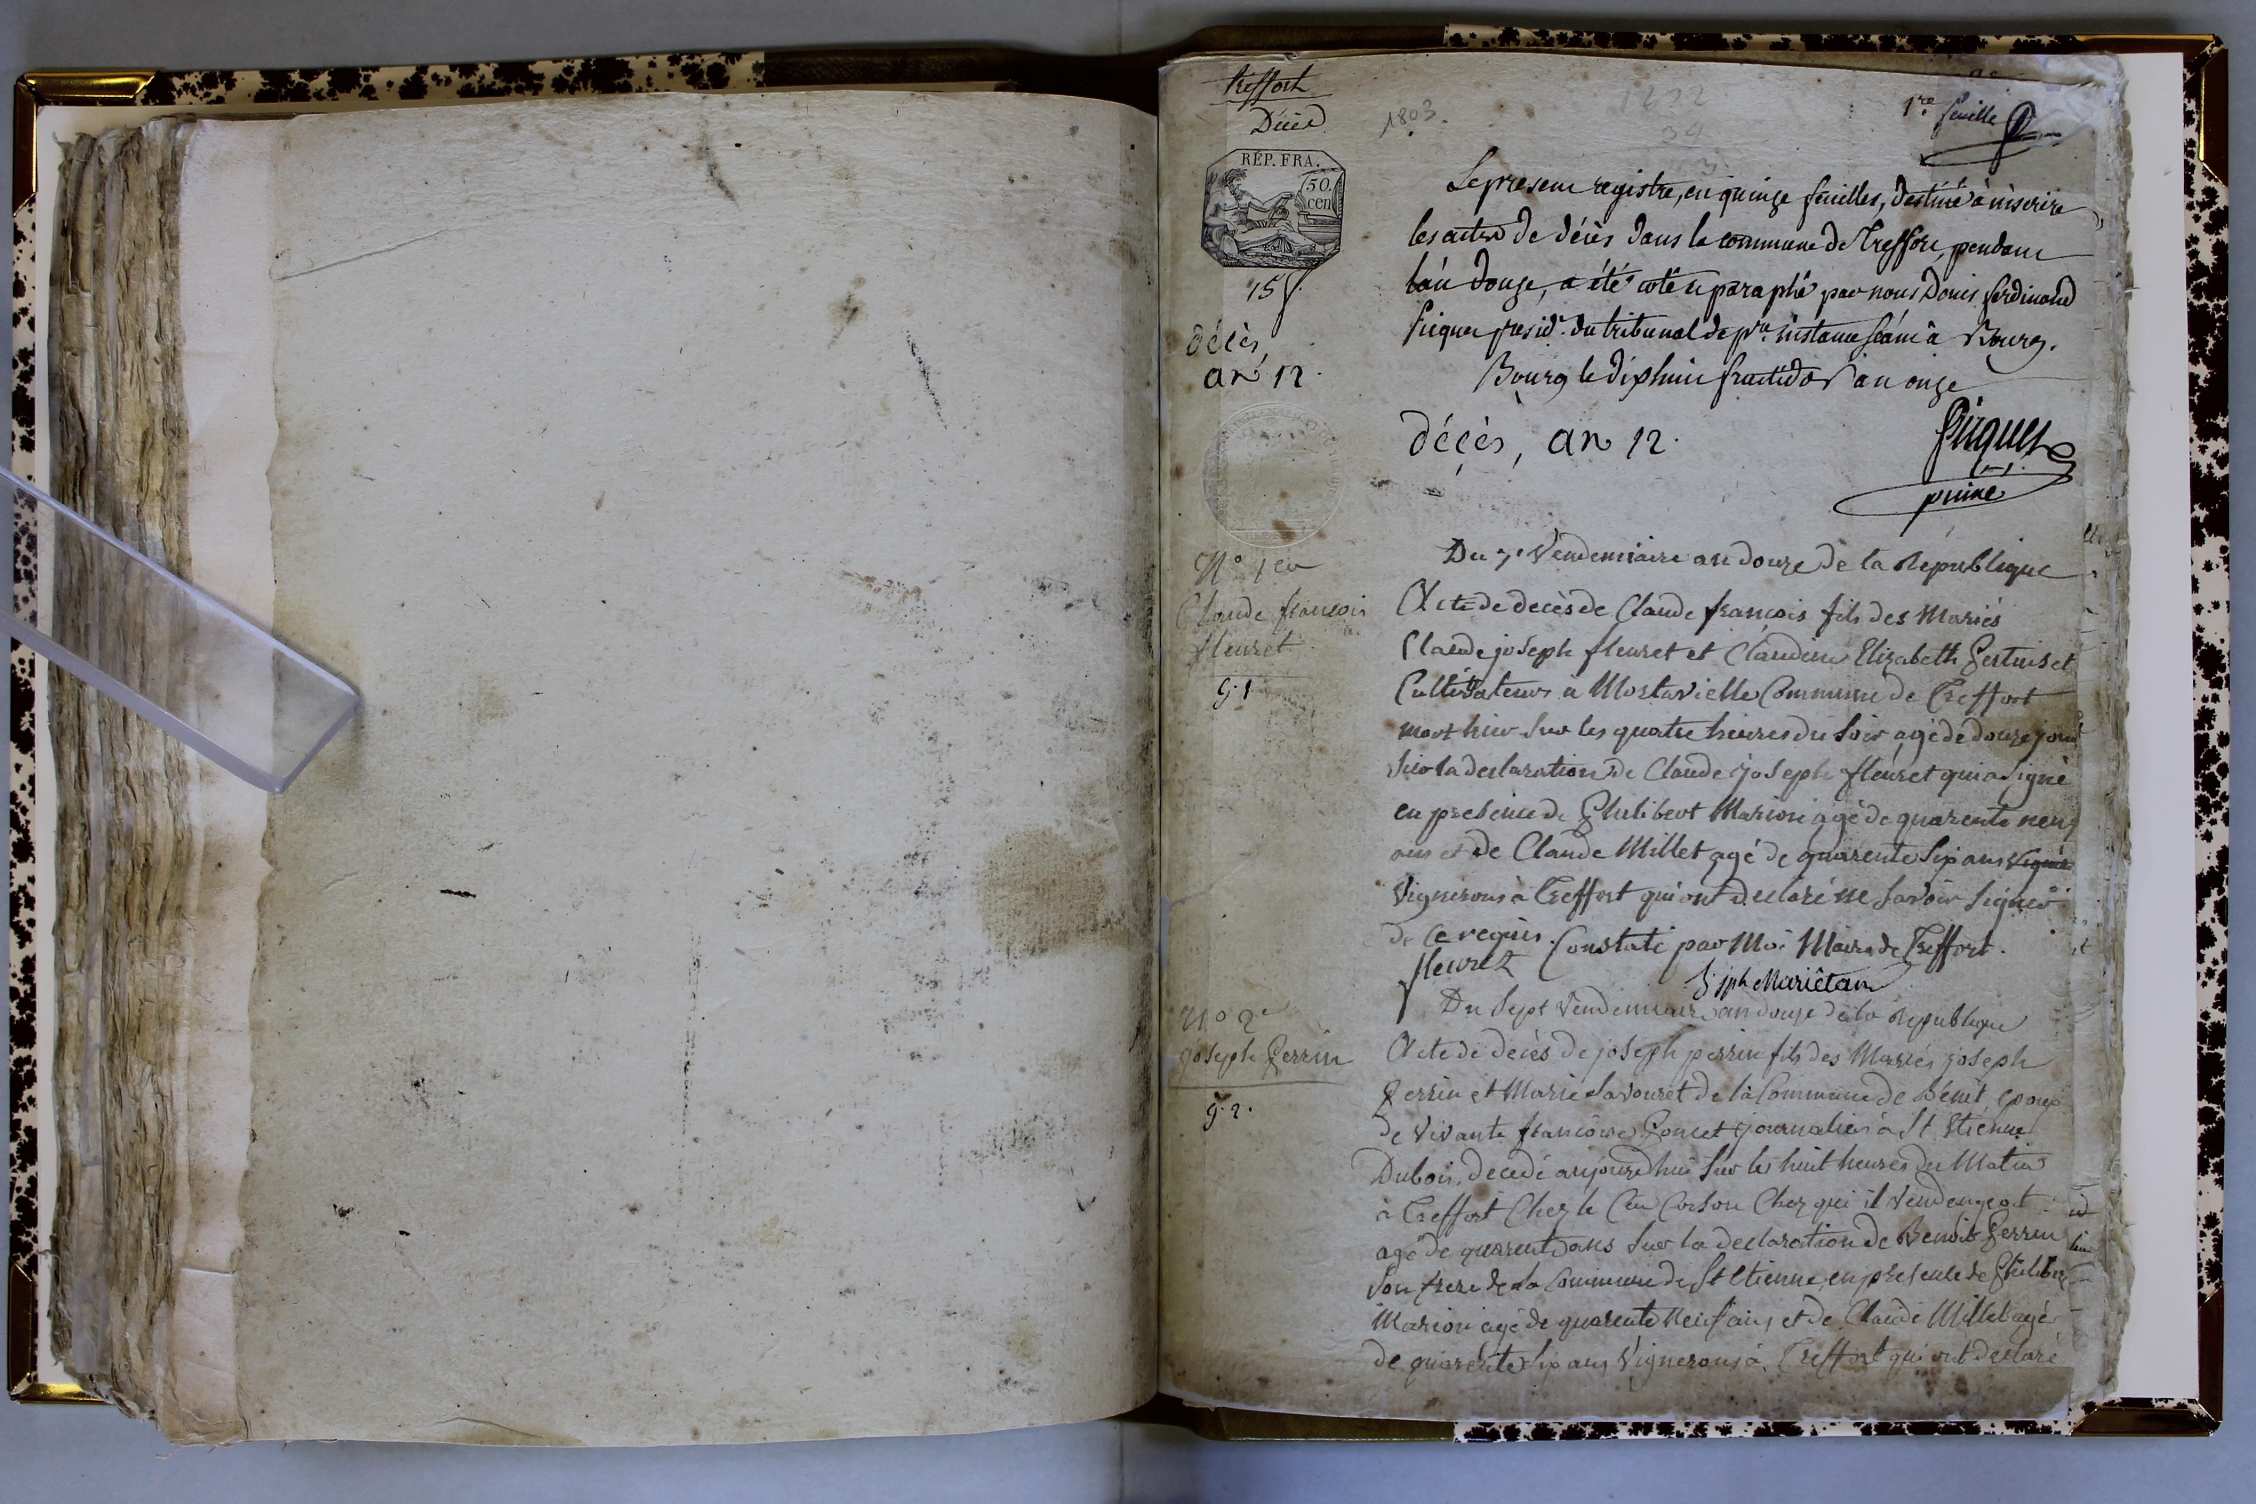 Treffort
Décès
1803.
1re feuille
RÉP. FRA.
50.
cen
15
décès,
an 12.
Le présent registre, en quinze feuilles, destiné à inscrire
les actes de décès dans la commune de Treffort, pendant
l'an douze, a été coté et paraphé par nous Denis ferdinand
Picquet présidt. du tribunal de pre. instance séant à Bourg.
Bourg le dixhuit fructidor an onze
décès, an 12.
Picquet
puiné
N° 1er
Claude françois
fleuret
g. 1
Du 7e Vendemiaire an douze de la Republique
Acte de decès de Claude françois fils des Mariés
Claude joseph fleuret et Claudine Elizabeth Pertuiset
Cultivateurs à Montavielle Commune de Treffort
mort hier sur les quatre heures du soir agé de douze jours
sur la declaration de Claude joseph fleuret qui a signé
en presence de Philibert Marion agé de quarente neuf
ans et de Claude Millet agé de quarente six ans
Vignerons à Treffort qui ont declaré ne savoir signer
de ce requis. Constaté par Moi Maire de Treffort.
fleuret
jph Mariétan
N° 2e
joseph Perrin
g. 2.
Du sept Vendemiaire an douze de la Republique
Acte de decès de joseph perrin fils des Mariés joseph
Perrin et Marie Savouret de la Commune de Bénit epoux
de vivante françoise Poncet journalier à St Etienne
Dubois, decedé aujourdhui sur les huit heures du Matin
à Treffort Chez le Cen Corson Chez qui il vendengeoit
agé de quarente ans sur la declaration de Benoit Perrin
son frere de la Commune de St Etienne, en presence de Philibert
Marion agé de quarente Neuf ans et de Claude Millet agé
de quarente six ans Vignerons à Treffort qui ont declaré